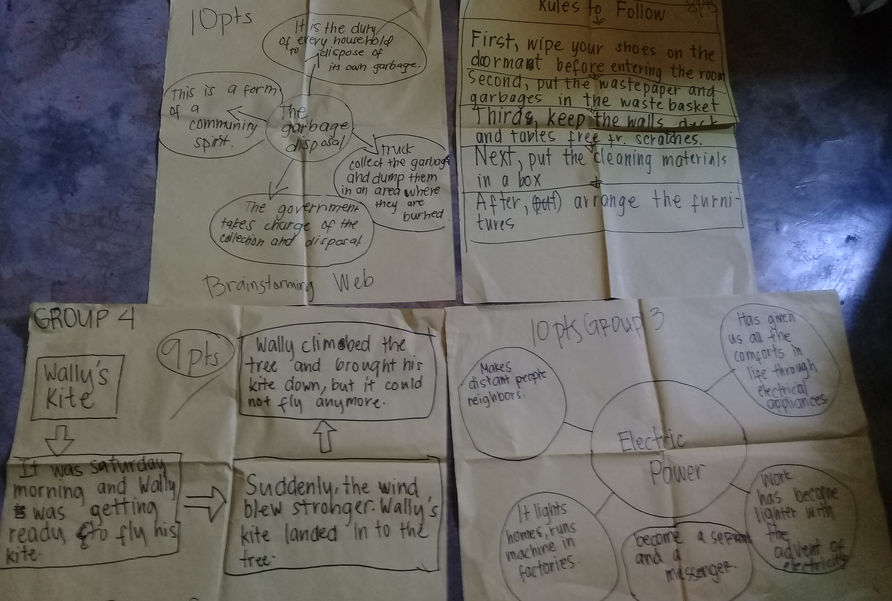 10pts
It is the duty
of every household
to dispose of
its own garbage.
This is a form
of a
community
spirit.
The
garbage
disposal
truck
collect the garbage
and dump them
in an area where
they are
burned
The government
takes charge of the
collection and disposal
Brainstorming Web
Rules to Follow
First, wipe your shoes on the
doormat before entering the room
Second, put the wastepaper and
garbages in the waste basket
Third, keep the walls, desk
and tables free fr. scratches.
Next, put the cleaning materials
in a box
After, (put) arrange the furni-
tures
GROUP 4
9pts
Wally's
Kite
It was saturday
morning and Wally
was getting
ready to fly his
kite.
Suddenly, the wind
blew stronger. Wally's
kite landed in to the
tree.
Wally climbed the
tree and brought his
kite down, but it could
not fly anymore.
10pts Group 3
Makes
distant people
neighbors.
Has given
us all the
comforts in
life through
electrical
appliances
Electric
Power
It lights
homes, runs
machine in
factories.
become a servant
and a
messenger.
Work
has become
lighter with
the
advent of
electricity